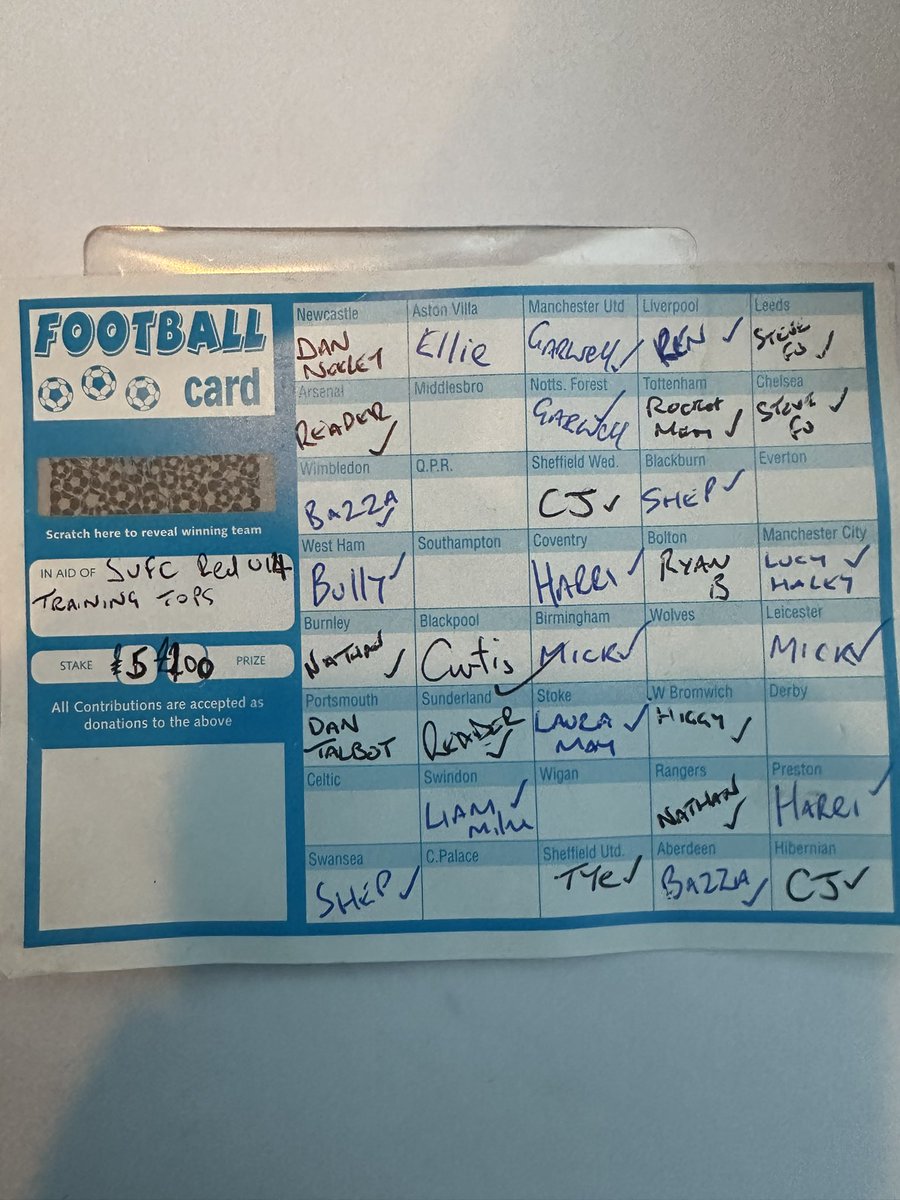 FOOTBALL
card
Scratch here to reveal winning team
IN AID OF SUFC Red U14
TRAINING TOPS
STAKE £5 £100 PRIZE
All Contributions are accepted as
donations to the above
Newcastle Aston Villa Manchester Utd Liverpool Leeds
DAN Ellie GARWELL ✓ REN ✓ STEVE
GO ✓
Arsenal Middlesbro Notts. Forest Tottenham Chelsea
READER ✓ GARWELL ✓ ROCKET STEVE ✓
MAN ✓ GO
Wimbledon Q.P.R. Sheffield Wed. Blackburn Everton
BAZZA ✓ CJ ✓ SHEP ✓
West Ham Southampton Coventry Bolton Manchester City
Bully ✓ HARRI ✓ RYAN LUCY ✓
B HALEY
Burnley Blackpool Birmingham Wolves Leicester
NATHAN ✓ Curtis ✓ MICK ✓ MICK ✓
Portsmouth Sunderland Stoke W Bromwich Derby
DAN READER ✓ LAURA ✓ HIGGY ✓
TALBOT MAY
Celtic Swindon Wigan Rangers Preston
LIAM ✓ NATHAN ✓ HARRI ✓
Swansea C.Palace Sheffield Utd. Aberdeen Hibernian
SHEP ✓ TYE ✓ BAZZA ✓ CJ ✓